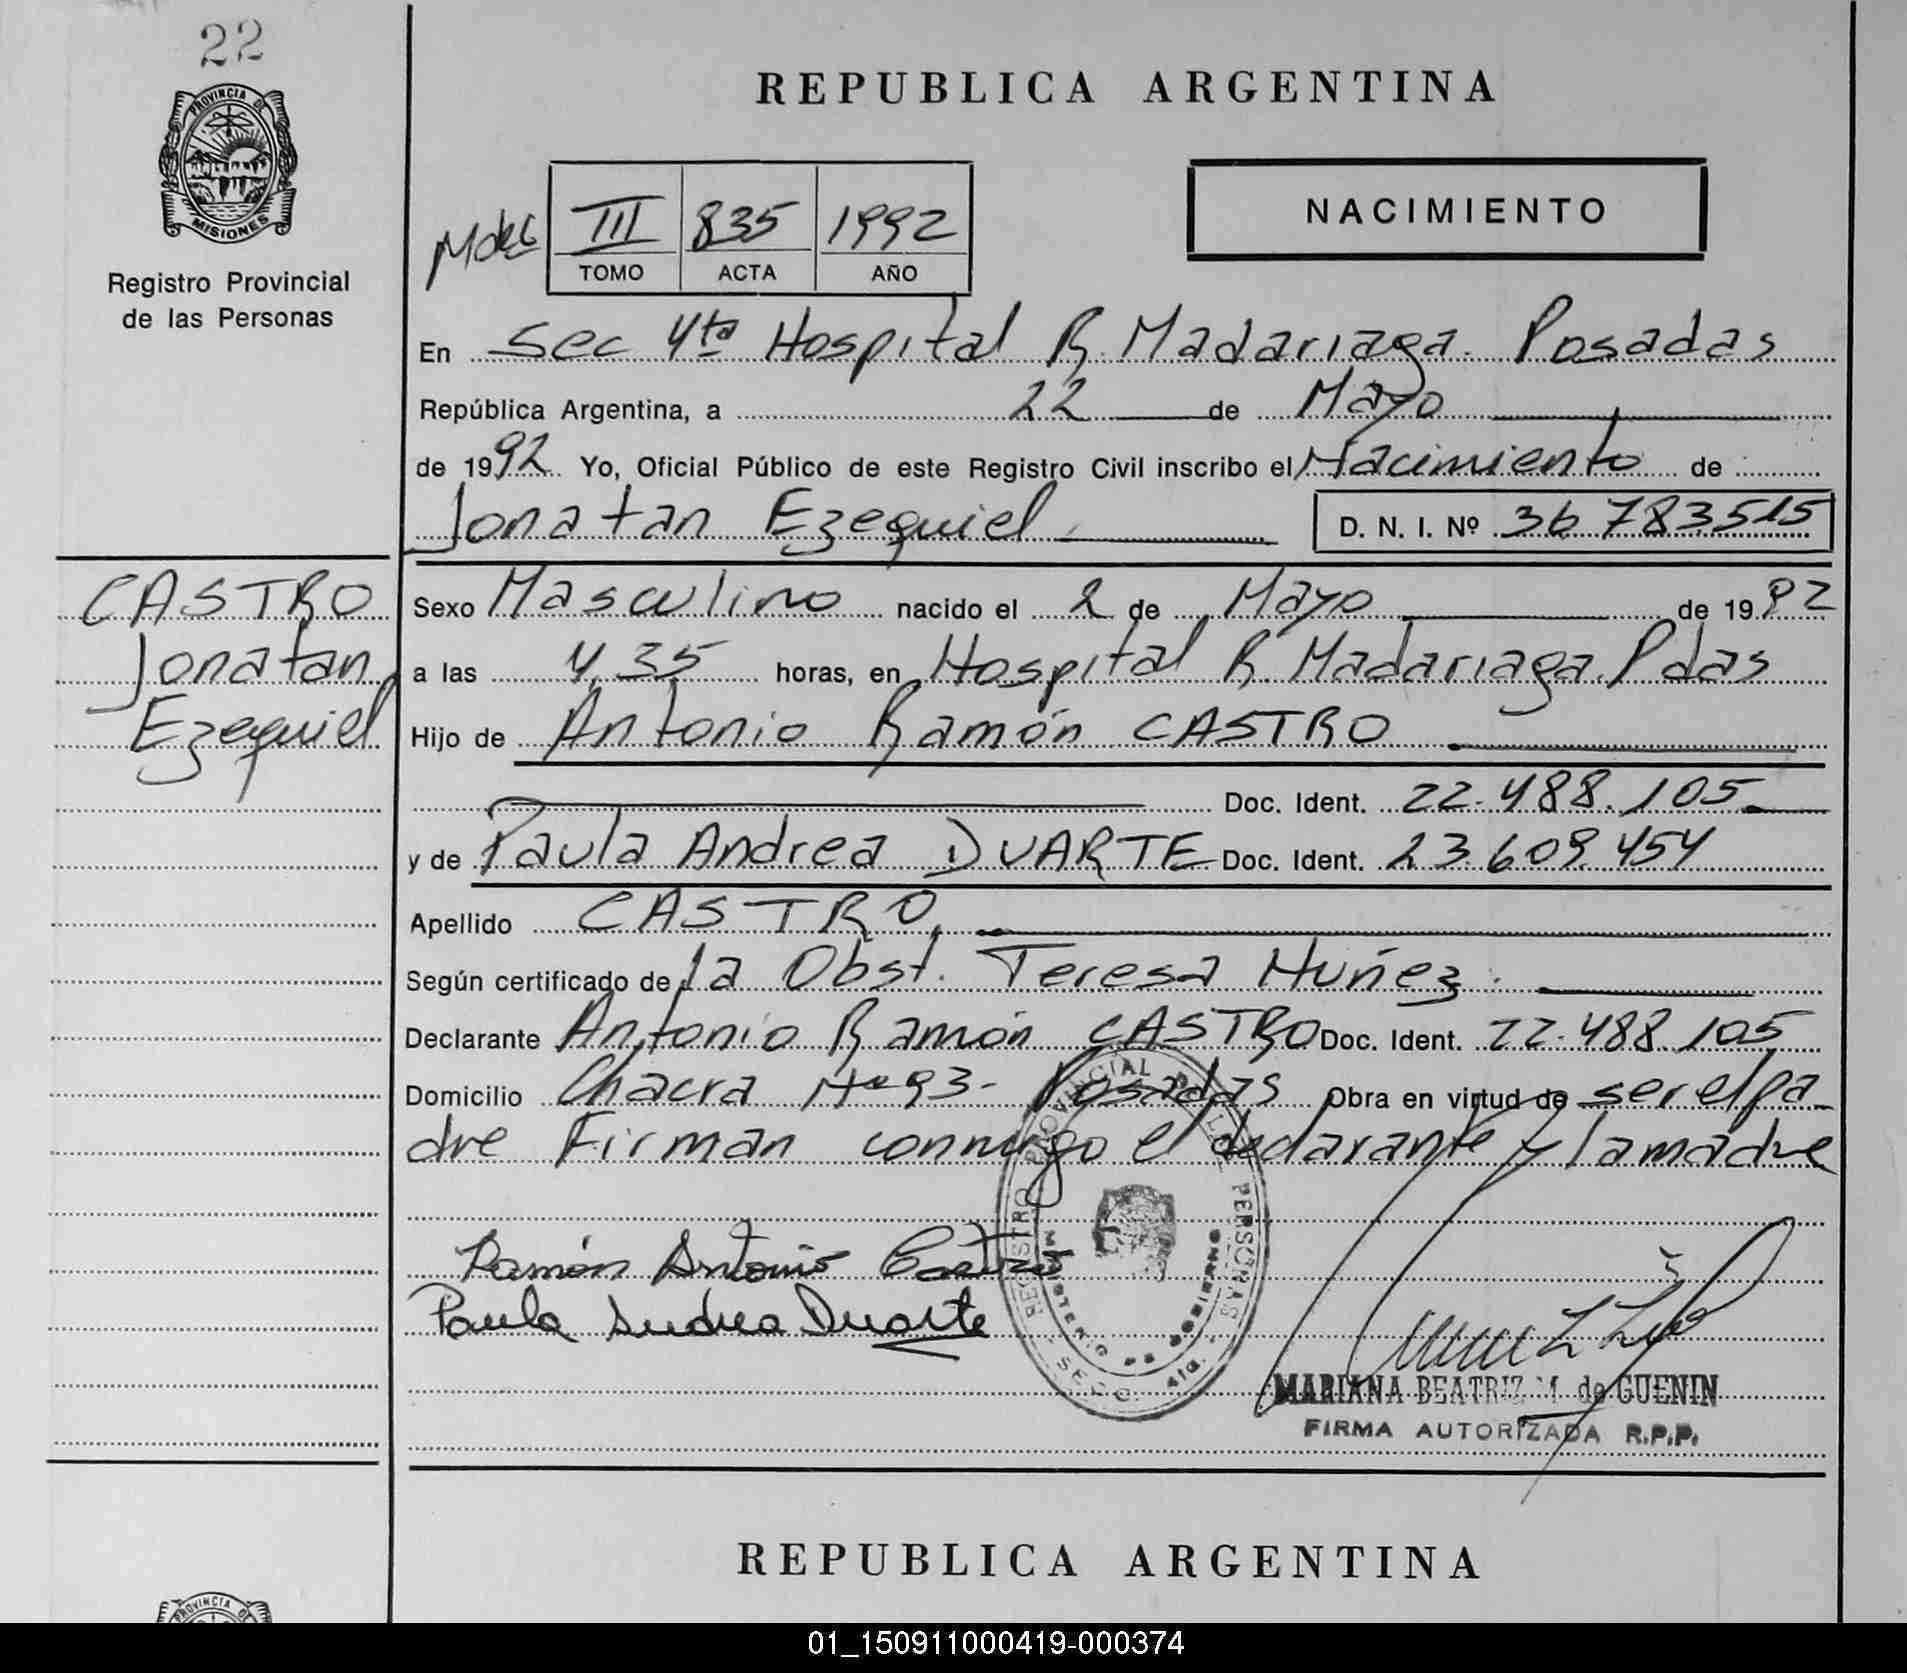 22
PROVINCIA DE
MISIONES
Registro Provincial
de las Personas
REPUBLICA ARGENTINA
III 835 1992
TOMO ACTA AÑO
NACIMIENTO
En Sec 4ta Hospital R. Madariaga. Posadas
República Argentina, a 22 de Mayo
de 1992 Yo, Oficial Público de este Registro Civil inscribo el Nacimiento de
Jonatan Ezequiel D. N. I. Nº 36 783515
CASTRO
Jonatan
Ezequiel
Sexo Masculino nacido el 2 de Mayo de 1992
a las 4,35 horas, en Hospital R. Madariaga. Pdas
Hijo de Antonio Ramón CASTRO
Doc. Ident. 22.488.105
y de Paula Andrea DUARTE Doc. Ident. 23.609.454
Apellido CASTRO
Según certificado de la Obst. Teresa Nuñez.
Declarante Antonio Ramón CASTRO Doc. Ident. 22.488.105
Domicilio Chacra Nº 93- Posadas Obra en virtud de ser el pa-
dre Firman conmigo el declarante y la madre
Ramón Antonio Castro
Paula Andrea Duarte
REGISTRO PROVINCIAL DE LAS PERSONAS
MINISTERIO DE GOBIERNO
MARIANA BEATRIZ M. de GUENIN
FIRMA AUTORIZADA R.P.P.
REPUBLICA ARGENTINA
PROVINCIA DE
01_150911000419-000374